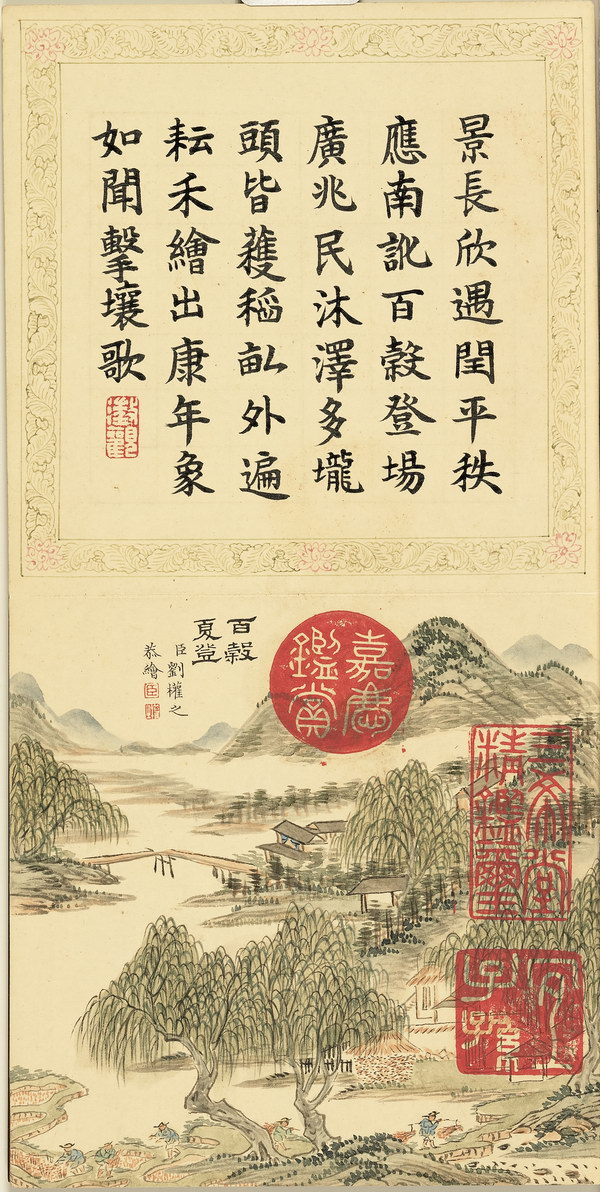 景長欣遇閏平秩
應南訛百穀登場
廣兆民沐澤多壠
頭皆穫稻畝外遍
耘禾繪出康年象
如聞擊壤歌
澂觀
嘉慶
鑑賞
百穀
夏登
臣劉權之
恭繪
三希堂
精鑑璽
宜
子孫